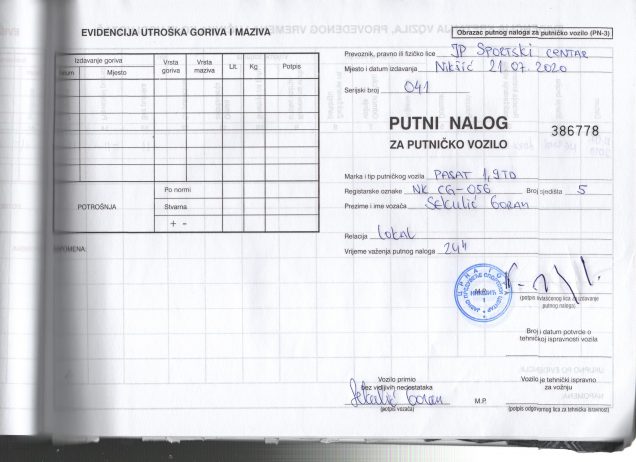 EVIDENCIJA UTROŠKA GORIVA I MAZIVA
Izdavanje goriva
Datum Mjesto
Vrsta goriva
Vrsta maziva
Lit. Kg Potpis
POTROŠNJA
Po normi
Stvarna
+ -
NAPOMENA:
Obrazac putnog naloga za putničko vozilo (PN-3)
Prevoznik, pravno ili fizičko lice JP SPORTSKI CENTAR
Mjesto i datum izdavanja Nikšić 21.07.2020
Serijski broj 041
PUTNI NALOG
ZA PUTNIČKO VOZILO
386778
Marka i tip putničkog vozila PASAT 1,9TD
Registarske oznake NK CG-056 Broj sjedišta 5
Prezime i ime vozača SEKULIĆ Goran
Relacija Lokal
Vrijeme važenja putnog naloga 24h
M.P.
(potpis ovlašćenog lica za izdavanje
putnog naloga)
Broj i datum potvrde o
tehničkoj ispravnosti vozila
Vozilo primio
bez vidljivih nedostataka
Sekulić Goran
(potpis vozača)
M.P.
Vozilo je tehnički ispravno
za vožnju
(potpis odgovornog lica za tehničku ispravnost)